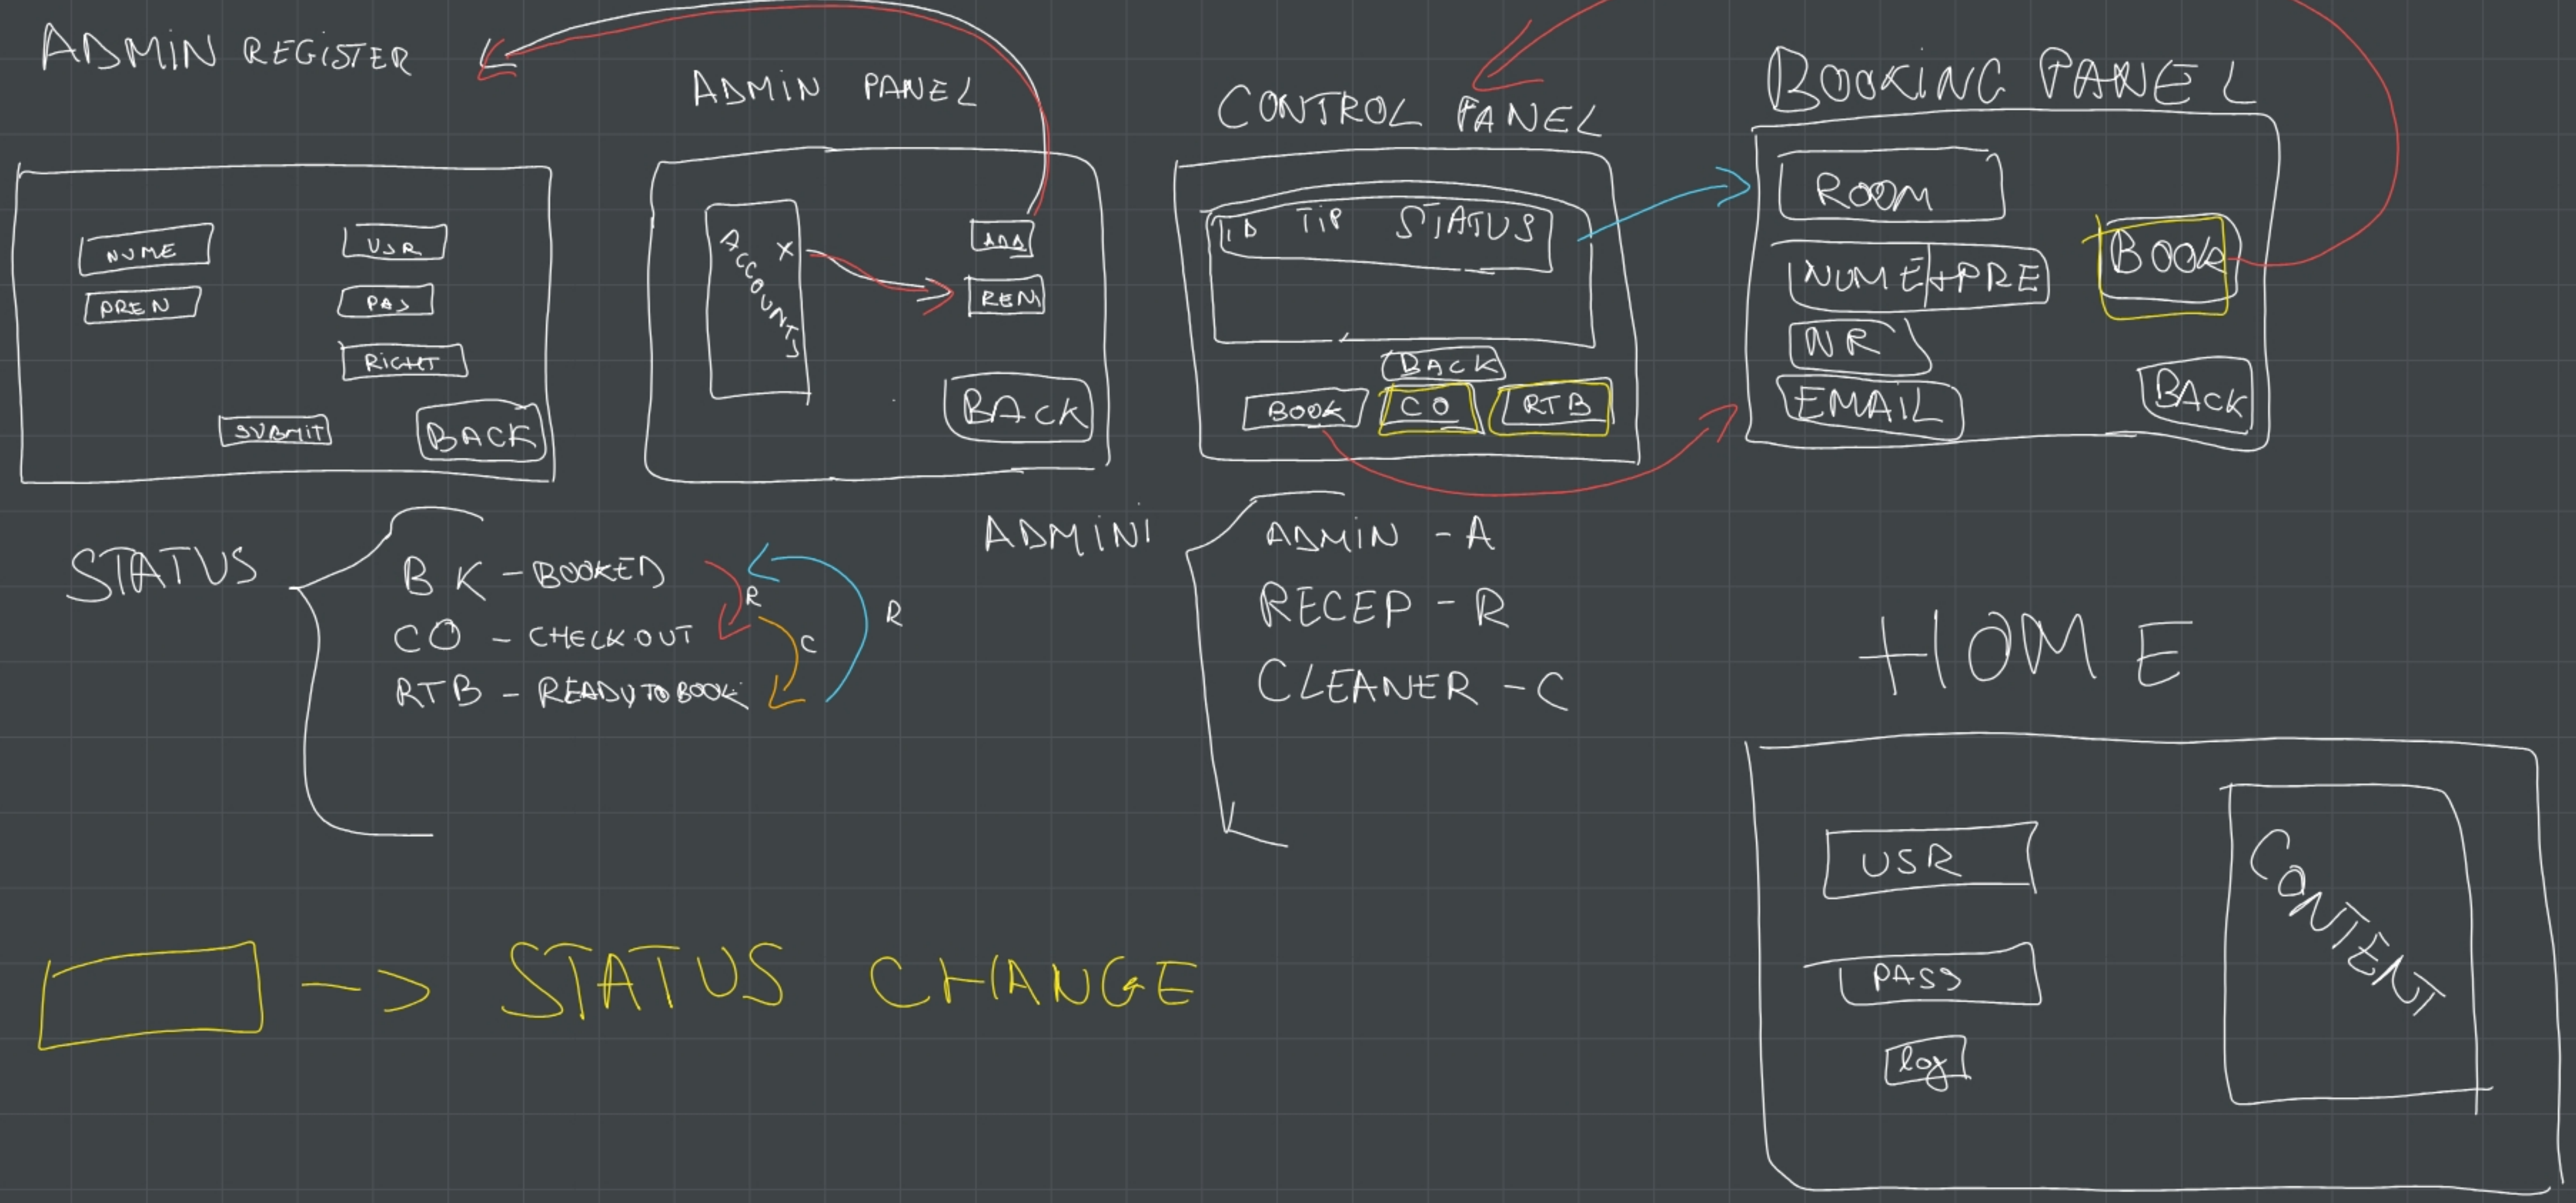 ADMIN REGISTER
NUME
PREN
USR
PAS
RIGHT
SUBMIT
BACK
ADMIN PANEL
ACCOUNTS
X
ADD
REM
BACK
CONTROL PANEL
ID TIP STATUS
BACK
BOOK
CO
RTB
BOOKING PANEL
ROOM
NUME+PRE
NR
EMAIL
BOOK
BACK
STATUS
BK - BOOKED
CO - CHECKOUT
RTB - READY TO BOOK
R
C
R
ADMINI
ADMIN - A
RECEP - R
CLEANER - C
HOME
USR
PASS
log
CONTENT
--> STATUS CHANGE